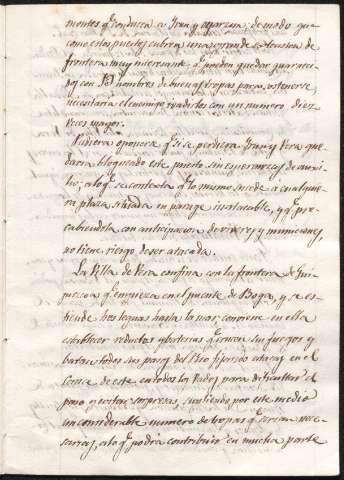 montes qᵉ conduzca a Irun y aparezea; de modo que
como estos puestos cubren una serranda extensa de
frontera muy interesante, qᵉ pueden quedar guarneci-
dos con hombres de buenas tropas para sostenerse,
necesitaria el enemigo evadirlos con un numero diez
veces mayor.
Pudiera oponerse qᵉ si se perdiera Irun y Vera que
daria bloqueado este puesto sin esperanzas de auxi-
lio; a lo qᵉ se contexta qᵉ lo mismo sucede a qualquie-
ra plaza situada en parage inatacable, y qᵉ pro-
cabiendola con anticipacion de viveres y municiones,
no tiene riesgo de ser atacada.
La Villa de Vera confina con la frontera de Gui-
puzcoa qᵉ empieza en el puente de Boga, y se es-
tiende tres leguas hasta la mar; conviene en ella
establecer reductos y baterias qᵉ crucen sus fuegos y
batan todos sus pasos del Rio fijando estacas en el
cauce de este en todos los Vados para dificultar el
paso y evitar sorpresas, supliendo por este medio
un considerable numero de tropas qᵉ serian nece-
sarias, a lo qᵉ podrá contribuir en mucha parte